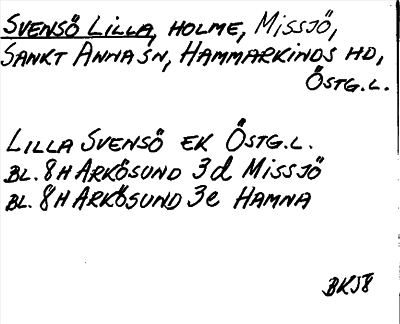 SVENSÖ LILLA, HOLME, MISSJÖ,
SANKT ANNA SN, HAMMARKINDS HD,
ÖSTG.L.
LILLA SVENSÖ EK ÖSTG.L.
BL. 8H ARKÖSUND 3d MISSJÖ
BL. 8H ARKÖSUND 3e HAMNA
BKJ8